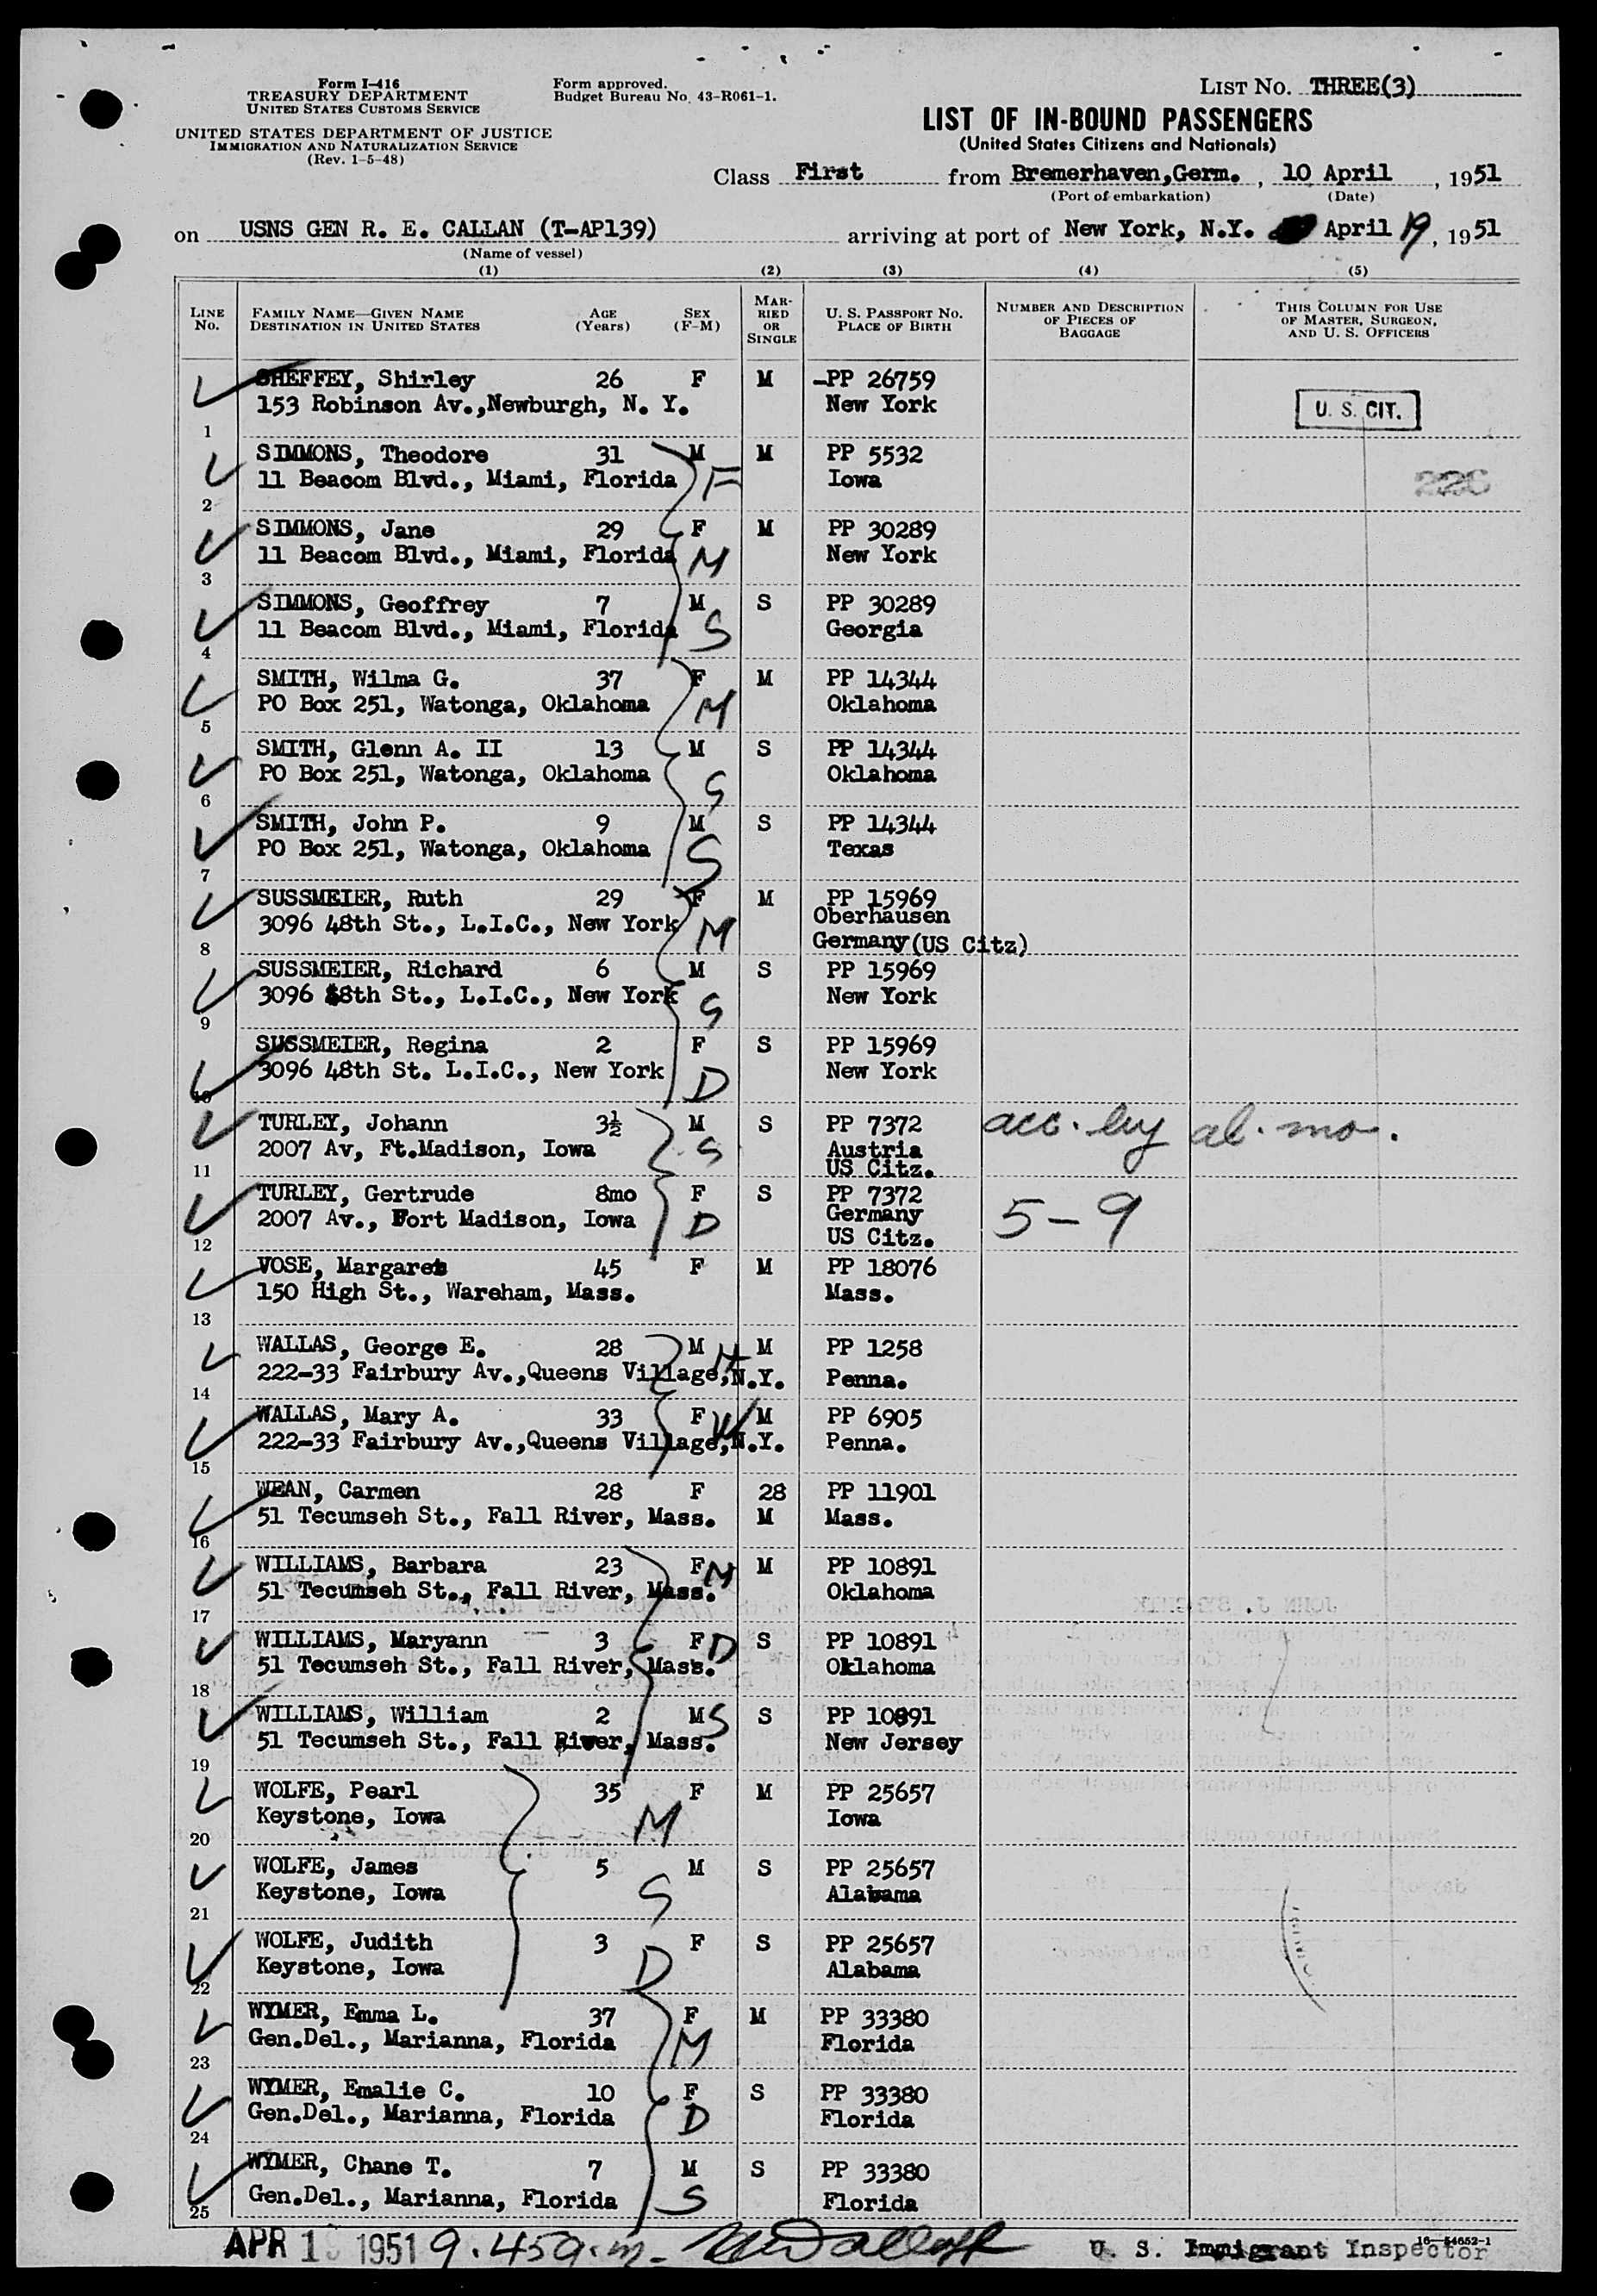 Form I-416
TREASURY DEPARTMENT
UNITED STATES CUSTOMS SERVICE
UNITED STATES DEPARTMENT OF JUSTICE
IMMIGRATION AND NATURALIZATION SERVICE
(Rev. 1-5-48)
Form approved.
Budget Bureau No. 43-R061-1.
LIST NO. THREE(3)
LIST OF IN-BOUND PASSENGERS
(United States Citizens and Nationals)
Class First from Bremerhaven,Germ. , 10 April , 1951
(Port of embarkation) (Date)
on USNS GEN R. E. CALLAN (T-AP139) arriving at port of New York, N.Y. April 19, 1951
(Name of vessel)
(1) (2) (3) (4) (5)
LINE No. FAMILY NAME—GIVEN NAME DESTINATION IN UNITED STATES AGE (Years) SEX (F-M) MARRIED OR SINGLE U. S. PASSPORT NO. PLACE OF BIRTH NUMBER AND DESCRIPTION OF PIECES OF BAGGAGE THIS COLUMN FOR USE OF MASTER, SURGEON, AND U. S. OFFICERS
SHEFFEY, Shirley 26 F M -PP 26759
153 Robinson Av.,Newburgh, N. Y. New York U. S. CIT.
1
SIMMONS, Theodore 31 M M PP 5532
11 Beacom Blvd., Miami, Florida F Iowa 226
2
SIMMONS, Jane 29 F M PP 30289
11 Beacom Blvd., Miami, Florida M New York
3
SIMMONS, Geoffrey 7 M S PP 30289
11 Beacom Blvd., Miami, Florida S Georgia
4
SMITH, Wilma G. 37 F M PP 14344
PO Box 251, Watonga, Oklahoma M Oklahoma
5
SMITH, Glenn A. II 13 M S PP 14344
PO Box 251, Watonga, Oklahoma S Oklahoma
6
SMITH, John P. 9 M S PP 14344
PO Box 251, Watonga, Oklahoma S Texas
7
SUSSMEIER, Ruth 29 F M PP 15969
3096 48th St., L.I.C., New York M Oberhausen
8 Germany(US Citz)
SUSSMEIER, Richard 6 M S PP 15969
3096 48th St., L.I.C., New York S New York
9
SUSSMEIER, Regina 2 F S PP 15969
3096 48th St. L.I.C., New York D New York
10
TURLEY, Johann 3½ M S PP 7372 acc. by al. mo.
2007 Av, Ft.Madison, Iowa S Austria
11 US Citz.
TURLEY, Gertrude 8mo F S PP 7372
2007 Av., Fort Madison, Iowa D Germany 5-9
12 US Citz.
VOSE, Margaret 45 F M PP 18076
150 High St., Wareham, Mass. Mass.
13
WALLAS, George E. 28 M H M PP 1258
222-33 Fairbury Av.,Queens Village,N.Y. Penna.
14
WALLAS, Mary A. 33 F W M PP 6905
222-33 Fairbury Av.,Queens Village,N.Y. Penna.
15
WEAN, Carmen 28 F 28 PP 11901
51 Tecumseh St., Fall River, Mass. M Mass.
16
WILLIAMS, Barbara 23 F M M PP 10891
51 Tecumseh St., Fall River, Mass. Oklahoma
17
WILLIAMS, Maryann 3 F D S PP 10891
51 Tecumseh St., Fall River, Mass. Oklahoma
18
WILLIAMS, William 2 M S S PP 10891
51 Tecumseh St., Fall River, Mass. New Jersey
19
WOLFE, Pearl 35 F M PP 25657
Keystone, Iowa M Iowa
20
WOLFE, James 5 M S PP 25657
Keystone, Iowa S Alabama
21
WOLFE, Judith 3 F S PP 25657
Keystone, Iowa D Alabama
22
WYMER, Emma L. 37 F M PP 33380
Gen.Del., Marianna, Florida M Florida
23
WYMER, Emalie C. 10 F S PP 33380
Gen.Del., Marianna, Florida D Florida
24
WYMER, Chane T. 7 M S PP 33380
Gen.Del., Marianna, Florida S Florida
25
APR 1 1951 9.45a.m. U. S. Immigrant Inspector
16-54652-1